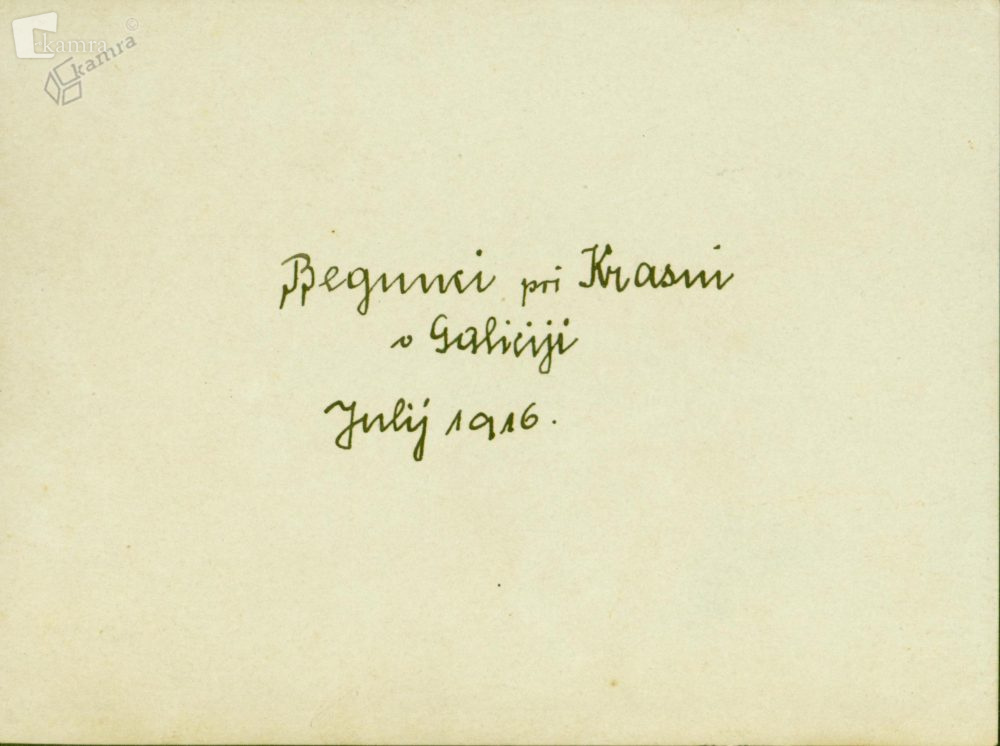 kamra
kamra ©
Begunci pri Krasni
v Galiciji
Julij 1916.